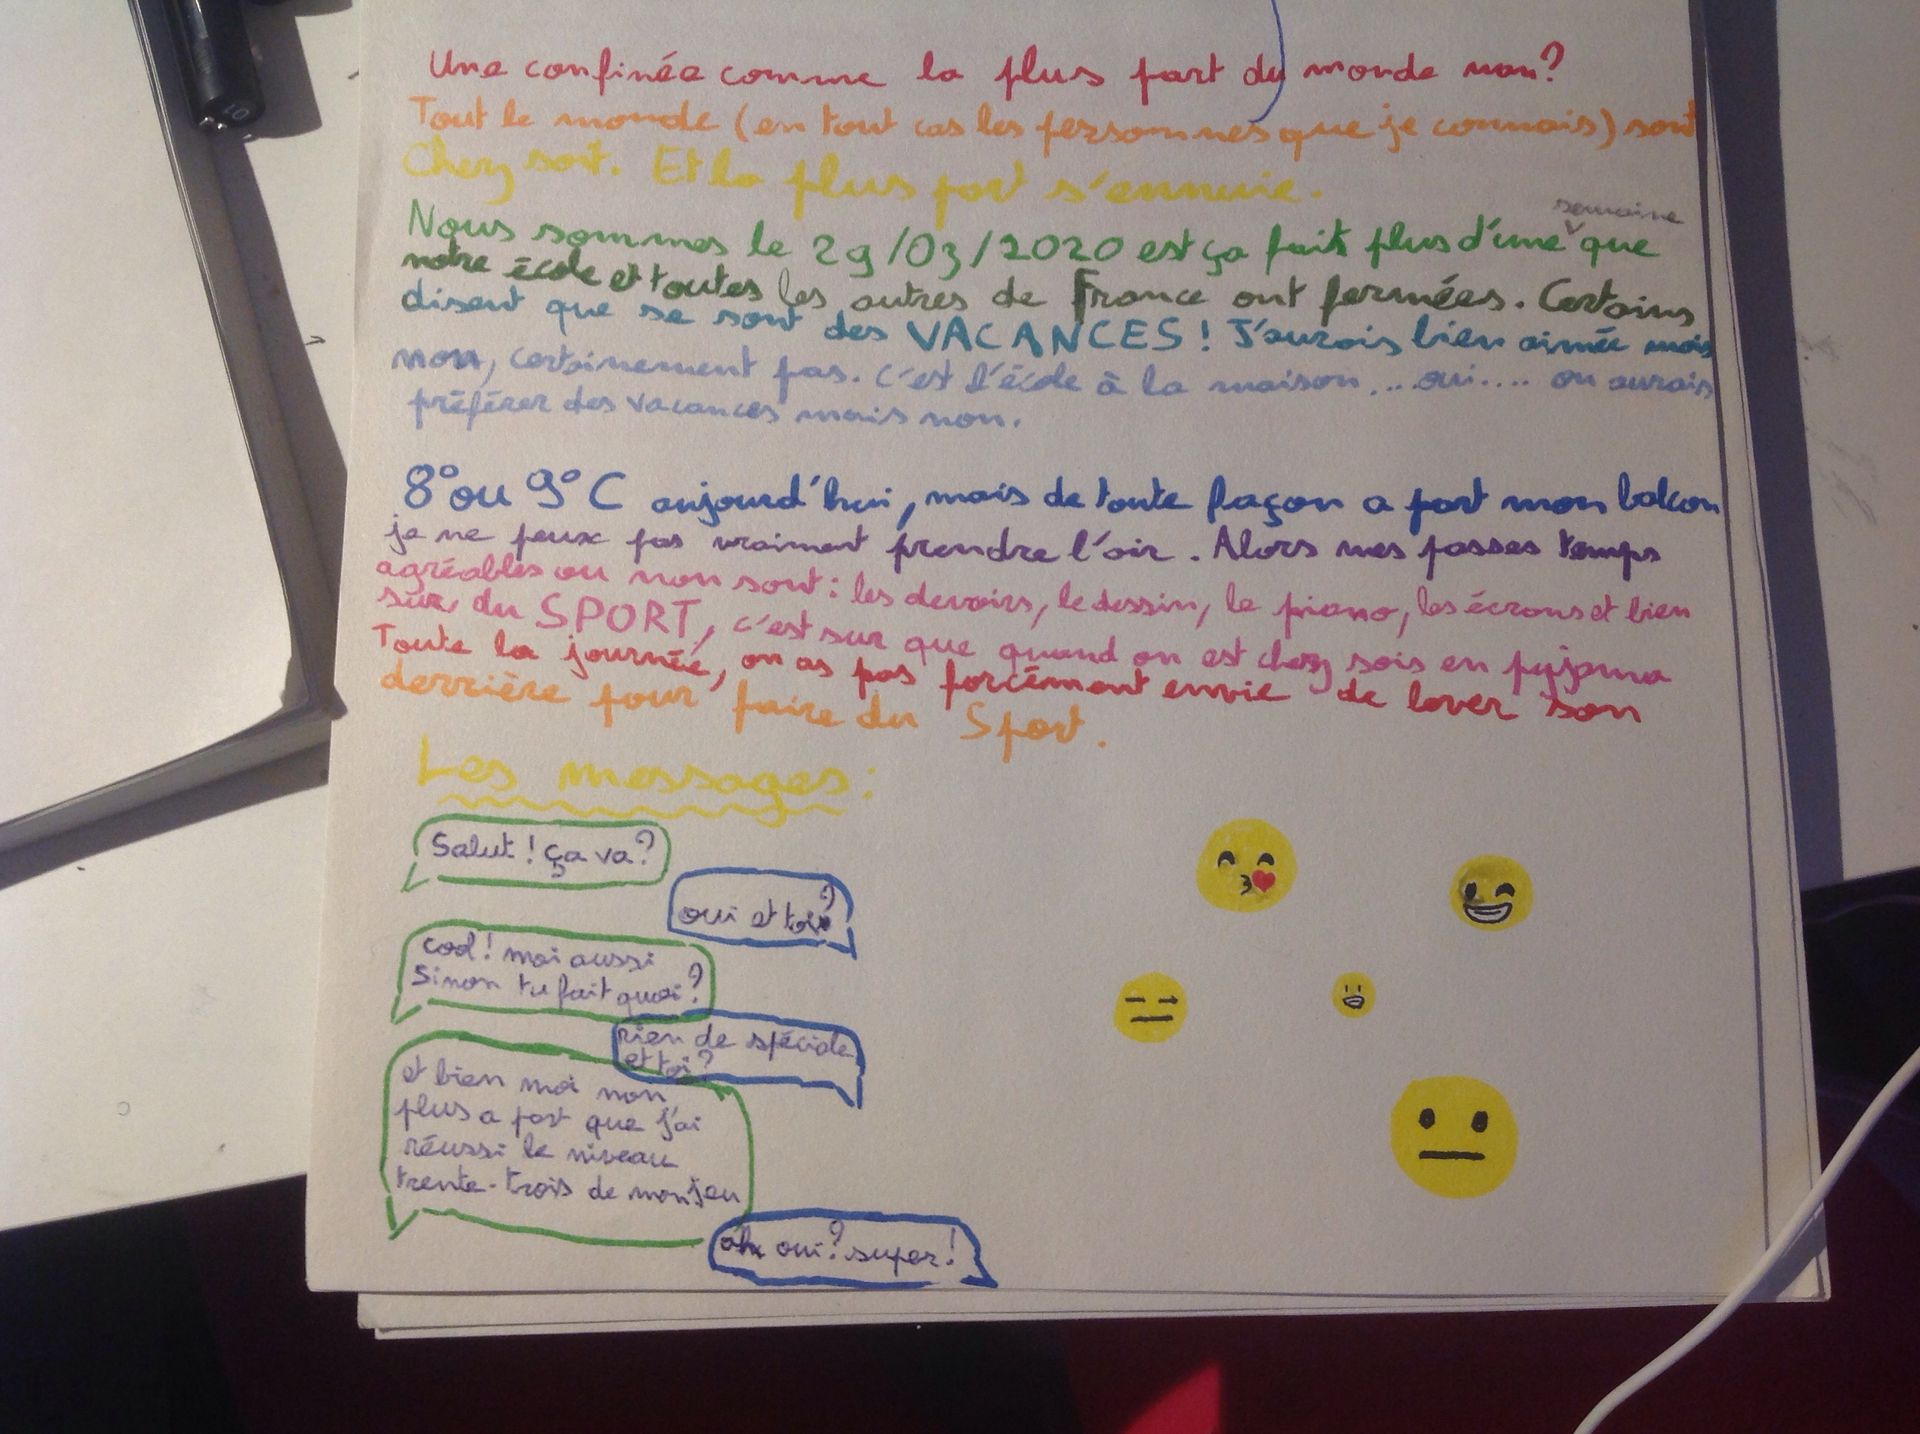 Une confinée comme la plus part du monde non?
Tout le monde (en tout cas les personnes que je connais) sont
Chez soit. Et la plus part s'ennuie.
semaine
Nous sommes le 29/03/2020 est ça fait plus d'une que
notre école et toutes les autres de France ont fermées. Certains
disent que se sont des VACANCES! J'aurais bien aimée mais
non, certainement pas. C'est l'école à la maison...oui.... on aurais
préférer des vacances mais non.
8° ou 9°C aujourd'hui, mais de toute façon a part mon balcon
je ne peux pas vraiment prendre l'air. Alors mes passes temps
agréables ou non sont: les devoirs, le dessin, le piano, les écrans et bien
sûr, du SPORT, c'est sur que quand on est chez sois en pyjama
Toute la journée, on as pas forcément envie de lever son
derrière pour faire du Sport.
Les messages:
Salut! ça va?
oui et toi?
cool! moi aussi
Sinon tu fait quoi?
rien de spéciale
et toi?
et bien moi non
plus a part que j'ai
réussi le niveau
trente-trois de mon jeu
ah oui? super!